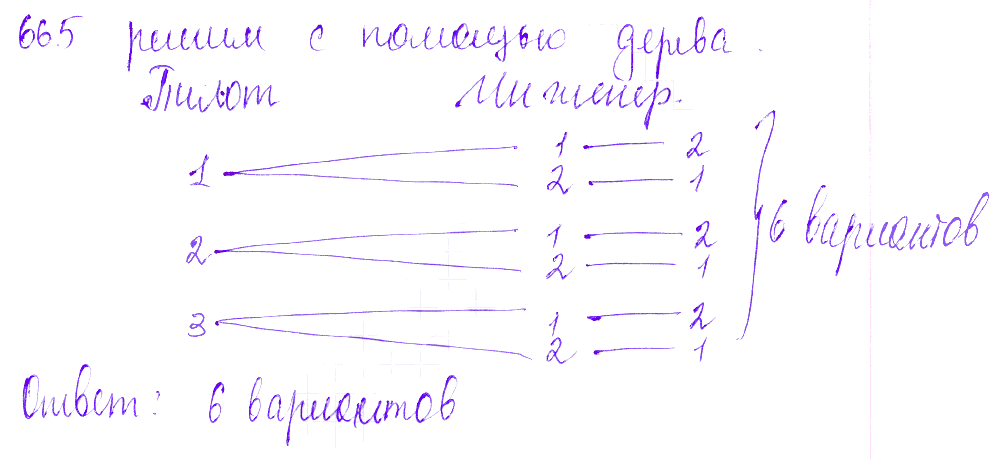 665 решим с помощью дерева.
Пилот Инженер.
1 1 2
2 1
2 1 2
2 1
3 1 2
2 1
6 вариантов
Ответ: 6 вариантов